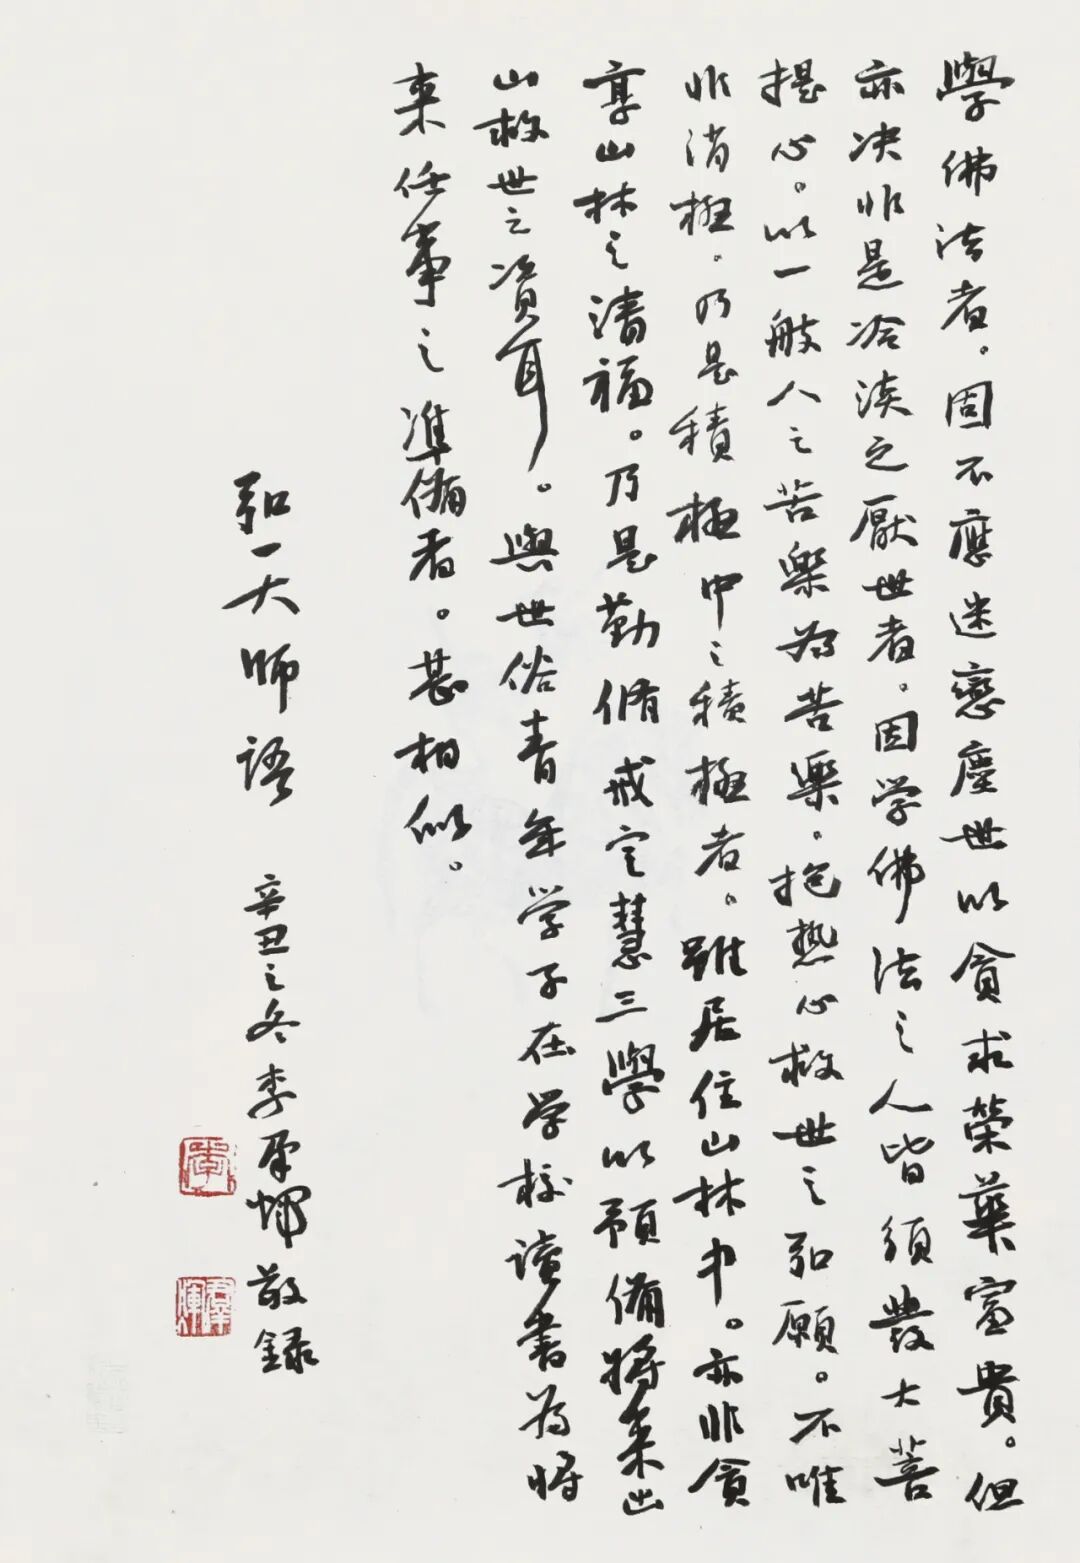 學佛法者。固不應迷戀塵世以貪求榮華富貴。但
亦决非是冷淡之厭世者。因学佛法之人皆須發大菩
提心。以一般人之苦樂为苦樂。抱热心救世之弘願。不唯
非消極。乃是積極中之積極者。雖居住山林中。亦非貪
享山林之清福。乃是勤脩戒定慧三學以預備將来出
山救世之資耳。與世俗青年学子在学校讀書为将
来任事之準備者。甚相似。
弘一大師語
辛丑之冬李羣輝敬録
李
羣輝